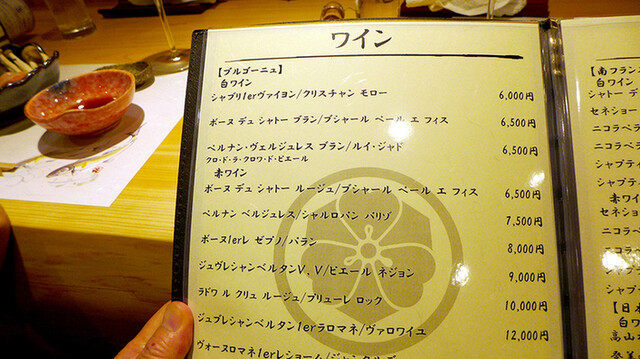 ワイン
【ブルゴーニュ】
白ワイン
シャブリ1erヴァイヨン/クリスチャン モロー 6,000円
ボーヌ デュ シャトー ブラン/ブシャール ペール エ フィス 6,500円
ペルナン・ヴェルジュレス ブラン/ルイ・ジャド 6,500円
クロ・ド・ラ・クロワ・ド・ピエール
赤ワイン
ボーヌ デュ シャトー ルージュ/ブシャール ペール エ フィス 6,500円
ペルナン ベルジュレス/シャルロパン パリゾ 7,500円
ボーヌ1erレ ゼプノ/パラン 8,000円
ジュヴレシャンベルタンV,V/ピエール ネジョン 9,000円
ラドワ ル クリュ ルージュ/プリューレ ロック 10,000円
ジュブレシャンベルタン1erラロマネ/ヴァロワイユ 12,000円
ヴォーヌロマネ1erレショーム/ジャン
【南フラン
白ワイン
シャトー デ
セネショー
ニコラペラ
シャプティ
赤ワイン
セネショ
ニコラペ
シャプティ
ニコラ
シャプテ
【日本
白ワ
高山